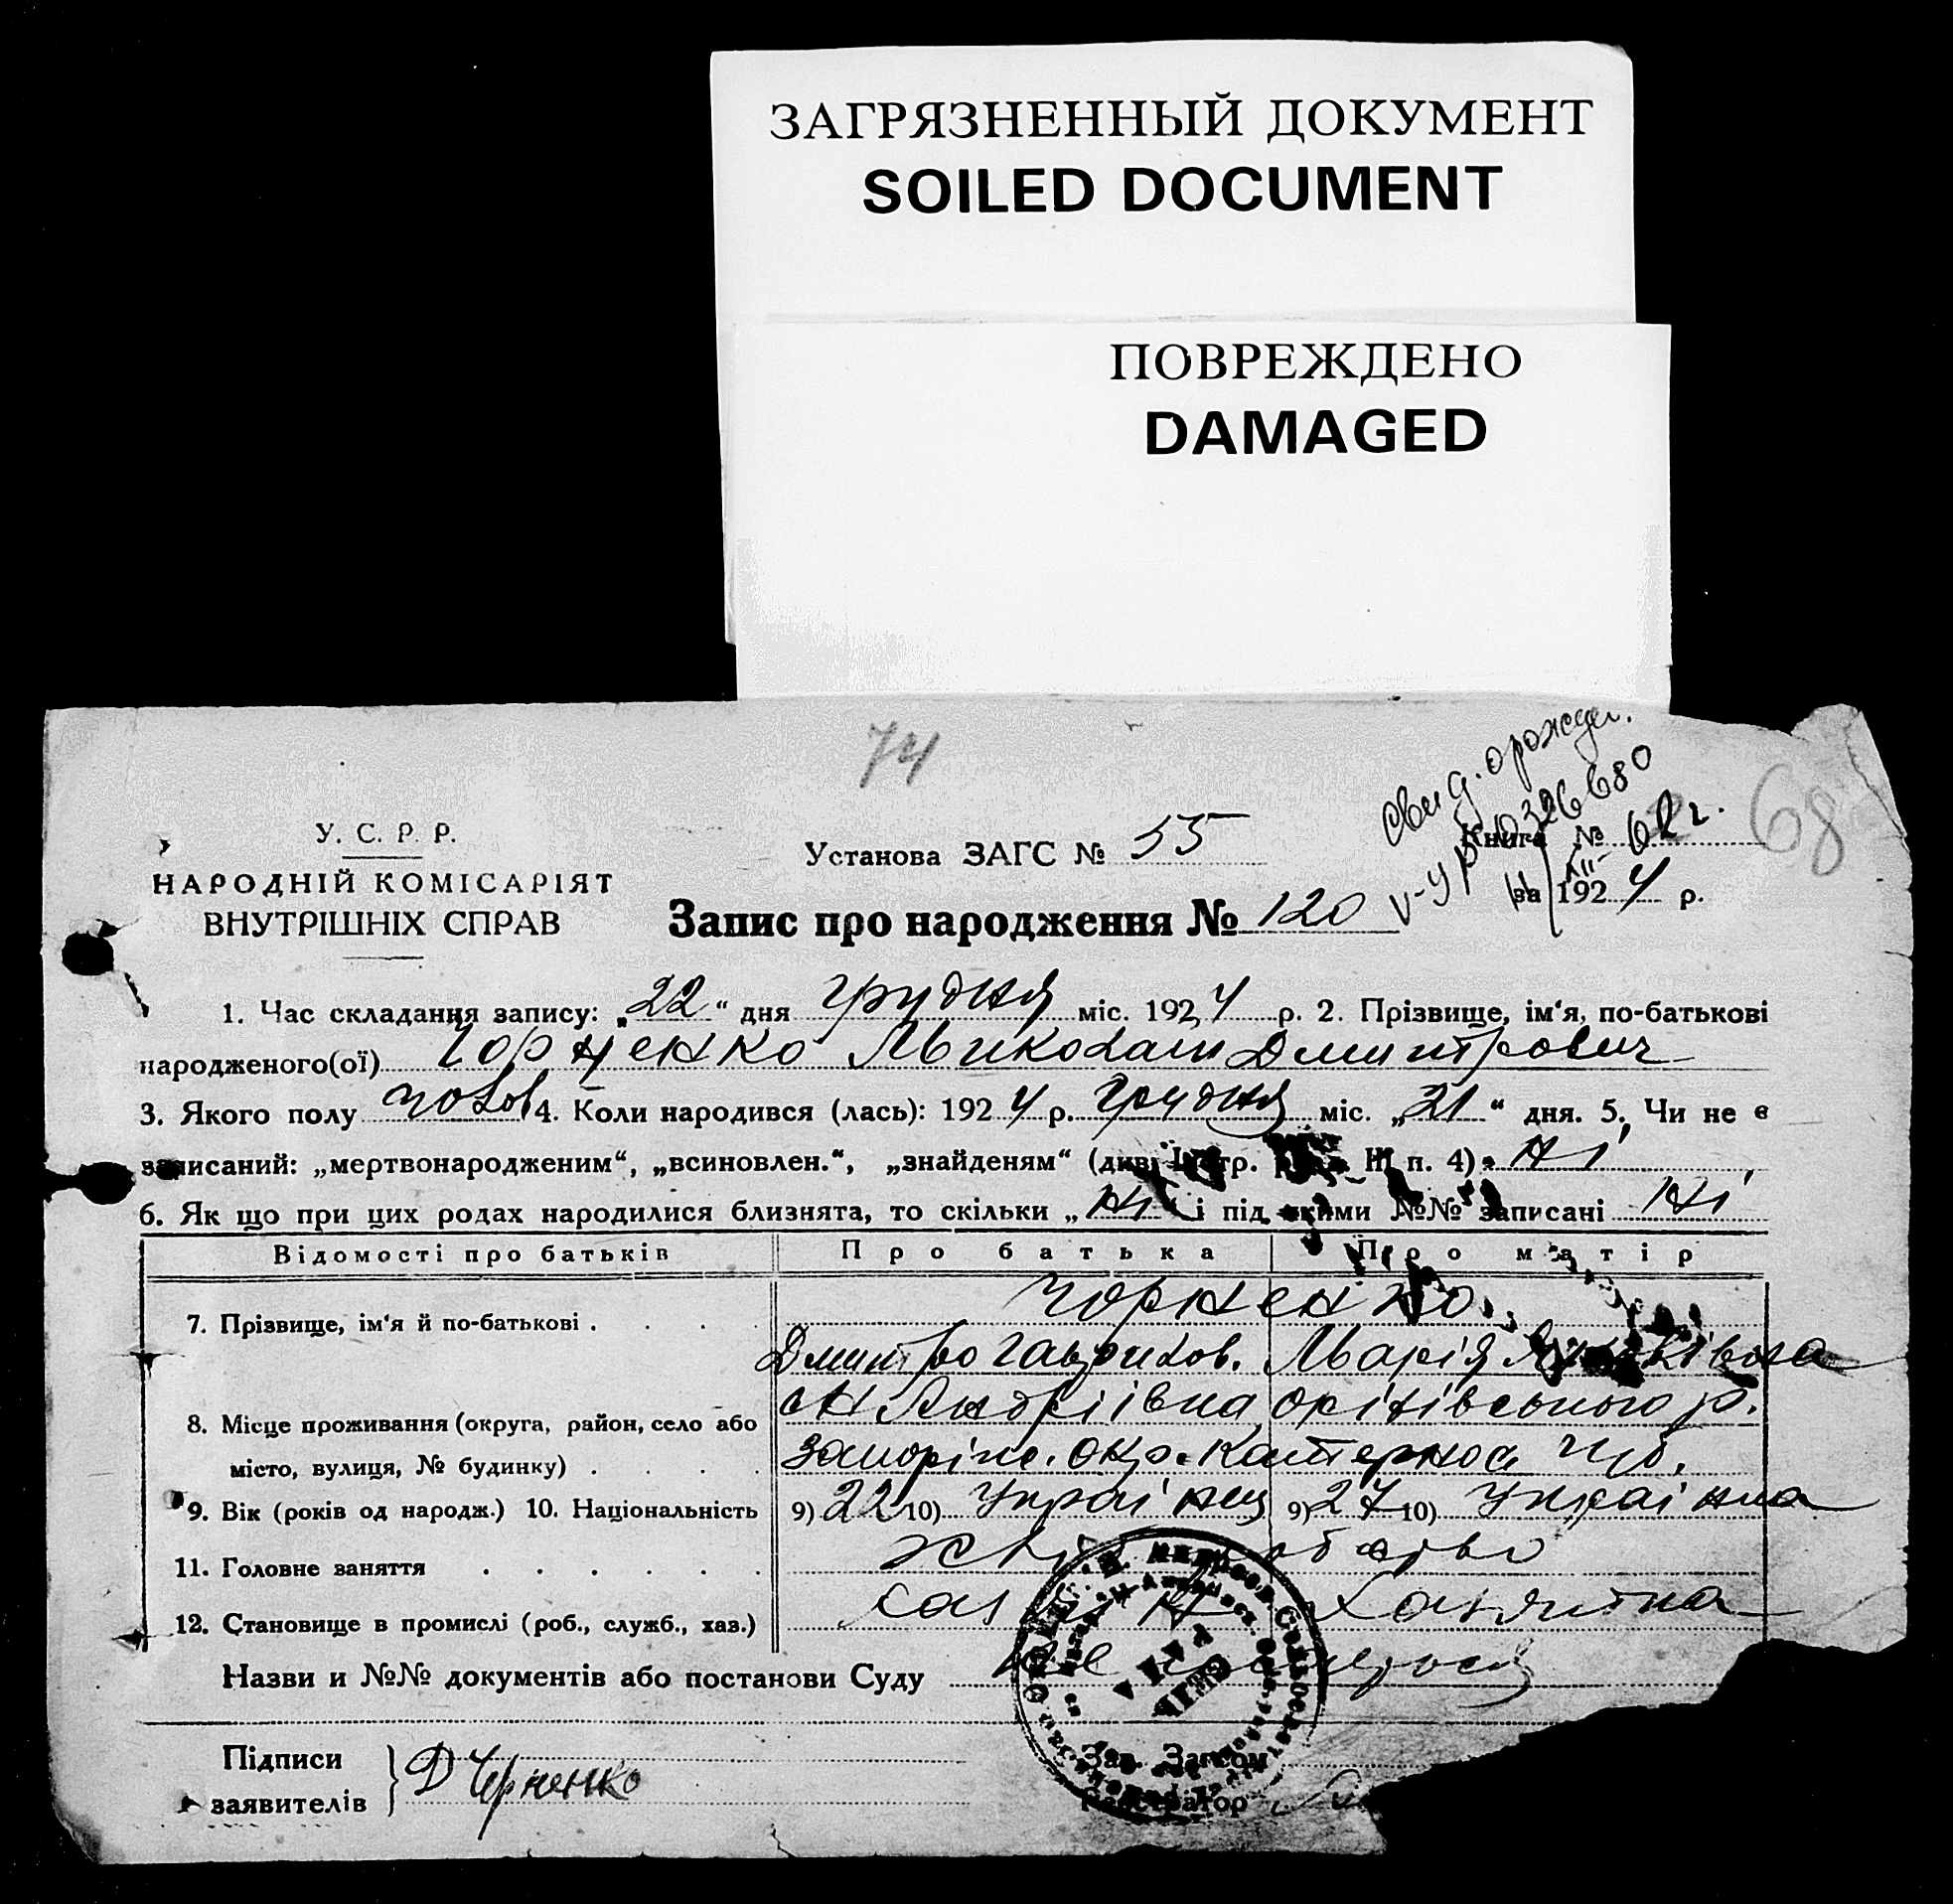 ЗАГРЯЗНЕННЫЙ ДОКУМЕНТ
SOILED DOCUMENT
ПОВРЕЖДЕНО
DAMAGED
74
свид. о рожден.
V-УР 0326680
XII- 62 г.
68
У. С. Р. Р.
НАРОДНІЙ КОМІСАРІЯТ
ВНУТРІШНІХ СПРАВ
Установа ЗАГС № 55
Книга №
за 1924 р.
Запис про народження № 120
1. Час складання запису: „22“ дня грудня міс. 1924 р. 2. Прізвище, ім‘я, по-батькові
народженого(ої) Миколай Дмитрович
3. Якого полу чолов 4. Коли народився (лась): 1924 р. грудня міс. „21“ дня. 5. Чи не є
записаний: „мертвонародженим“, „всиновлен.“, „знайденям“ (див. Інстр. п. 4) ні
6. Як що при цих родах народилися близнята, то скільки „ні“ і під якими №№ записані ні
Відомості про батьків Про батька Про матір
7. Прізвище, ім‘я й по-батькові . . . . Чорненко
Дмитро Гаврилов. Марія
8. Місце проживання (округа, район, село або
місто, вулиця, № будинку) . . . .
с Андріївна Оріхівського р.
Запоріж. окр. Катеринос. губ.
9. Вік (років од народж.) 10. Національність 9) 22 10) Українец 9) 27 10) Українка
11. Головне заняття . . . . . .
12. Становище в промислі (роб., служб., хаз.) Хазяїн Хазяйка
Назви и №№ документів або постанови Суду
Підписи
заявителів
Д Черненко
Зав. Загсом
Реєстратор